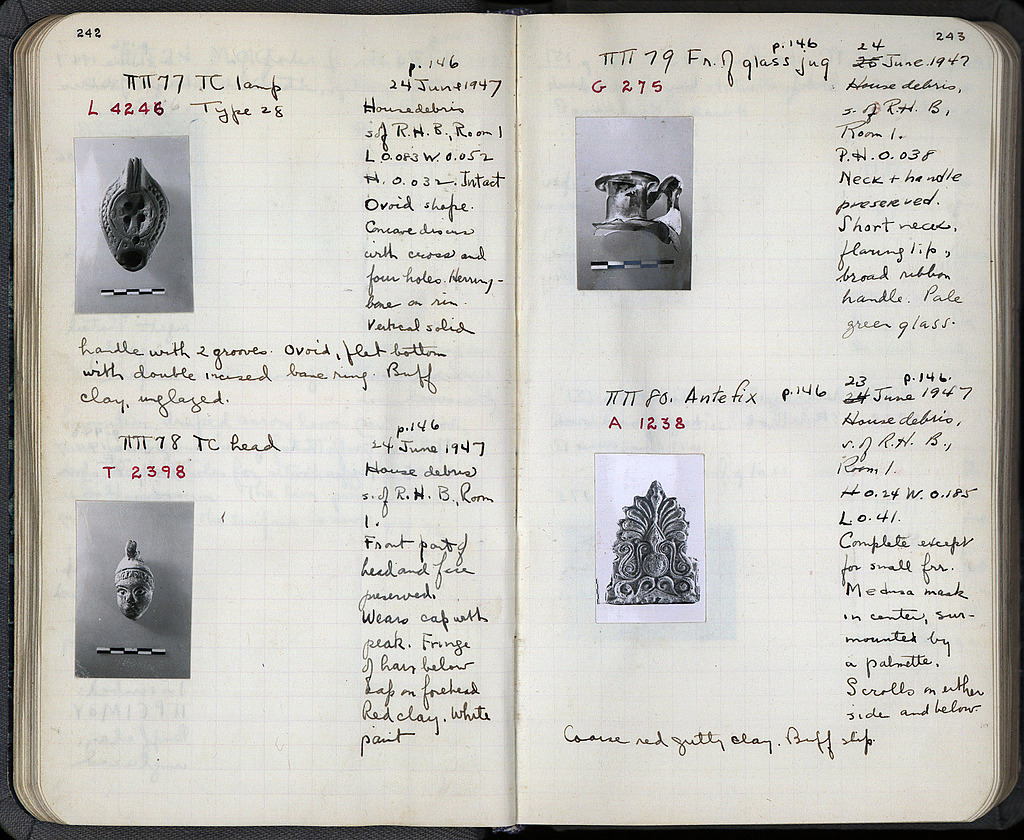 242
p. 146
ΠΠ 77 TC lamp
24 June 1947
L 4246 Type 28
House debris
s. of R.H.B., Room 1
L 0.083 W. 0.052
H. 0.032. Intact
Ovoid shape.
Concave discus
with cross and
four holes. Herring-
bone on rim.
Vertical solid
handle with 2 grooves. Ovoid, flat bottom
with double incised base ring. Buff
clay, unglazed.
p. 146
ΠΠ 78 TC head
24 June 1947
T 2398
House debris
s. of R.H.B., Room
1.
Front part of
head and face
preserved.
Wears cap with
peak. Fringe
of hair below
cap on forehead
Red clay. White
paint
243
p. 146
ΠΠ 79 Fr. of glass jug
24
25 June 1947
G 275
House debris,
s. of R.H. B,
Room 1.
P.H. 0.038
Neck + handle
preserved.
Short neck,
flaring lip,
broad ribbon
handle. Pale
green glass.
ΠΠ 80. Antefix p. 146
23 p. 146.
24 June 1947
A 1238
House debris,
s. of R.H. B.,
Room 1.
H 0.24 W. 0.185
L 0.41.
Complete except
for small frr.
Medusa mask
in center, sur-
mounted by
a palmette.
Scrolls on either
side and below
Coarse red gritty clay. Buff slip